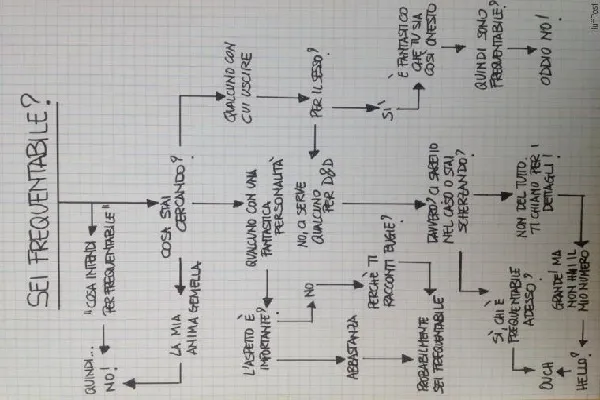 SEI FREQUENTABILE?
"COSA INTENDI
PER FREQUENTABILE"
QUINDI...
NO!
COSA STAI
CERCANDO?
LA MIA
ANIMA GEMELLA
QUALCUNO CON UNA
FANTASTICA
PERSONALITÀ
QUALCUNO CON
CUI USCIRE
L'ASPETTO È
IMPORTANTE?
NO
ABBASTANZA
PERCHÈ TI
RACCONTI BUGIE?
PROBABILMENTE
SEI FREQUENTABILE
PER IL SESSO?
NO, CI SERVE
QUALCUNO
PER D&D
SÌ
È FANTASTICO
CHE TU SIA
COSÌ ONESTO
QUINDI SONO
FREQUENTABILE?
ODDIO NO!
DAVVERO? CI SAREI IO
NEL CASO O STAI
SCHERZANDO?
SÌ, CHI È
FREQUENTABILE
ADESSO?
NON DEL TUTTO.
TI CHIAMO PER I
DETTAGLI!
GRANDE! MA
NON HAI IL
MIO NUMERO
HELLO?
OUCH